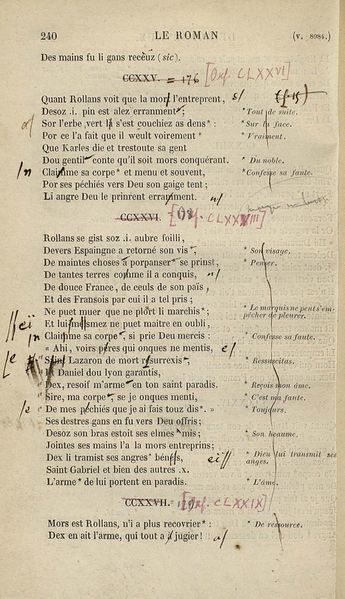 240 LE ROMAN (v. 8084.
Des mains fu li gans receüz (sic).
CCXXV. = 176 [Oxf. CLXXVI]
Quant Rollans voit que la mort l'entreprent,
Desoz .i. pin est alez erranment*; * Tout de suite.
Sor l'erbe vert li s'est couchiez as dens* : * Sur la face.
Por ce l'a fait que il weult voirement* * Vraiment.
Que Karles die et trestoute sa gent
Dou gentil* conte qu'il soit mors conquérant. * Du noble.
Claimme sa corpe* et menu et souvent, * Confesse sa faute.
Por ses péchiés vers Deu son gaige tent;
Li angre Deu le prinrent erranment.
CCXXVI.
Rollans se gist soz .i. aubre foilli,
Devers Espaingne a retorné son vis*, * Son visage.
De maintes choses a porpanser* se prinst, * Penser.
De tantes terres comme il a conquis,
De douce France, de ceuls de son païs,
Et des Fransois par cui il a tel pris;
Ne puet muer que ne plort li marchis*; * Le marquis ne peut s'em-
pêcher de pleurer.
Et lui meïsmez ne puet maitre en oubli,
Claimme sa corpe*, si prie Deu mercis : * Confesse sa faute.
« Ahi, voirs pères qui onques ne mentis,
Saint Lazaron de mort resurrexis*, * Ressuscitas.
Et Daniel dou lyon garantis,
Dex, resoif m'arme* en ton saint paradis. * Reçois mon âme.
Sire, ma corpe*, se je onques menti, * C'est ma faute.
De mes péchiés que je ai fais touz dis*. » * Toujours.
Ses destres gans en fu vers Deu offris;
Desoz son bras estoit ses elmes* mis; * Son heaume.
Jointes ses mains l'a la mors entreprins;
Dex li tramist ses angres* bénéss, * Dieu lui transmit ses
anges.
Saint Gabriel et bien des autres .x.
L'arme* de lui portent en paradis. * L'âme.
CCXXVII. [Oxf. CLXXIX]
Mors est Rollans, n'i a plus recovrier* : * De ressource.
Dex en ait l'arme, qui tout a a jugier!